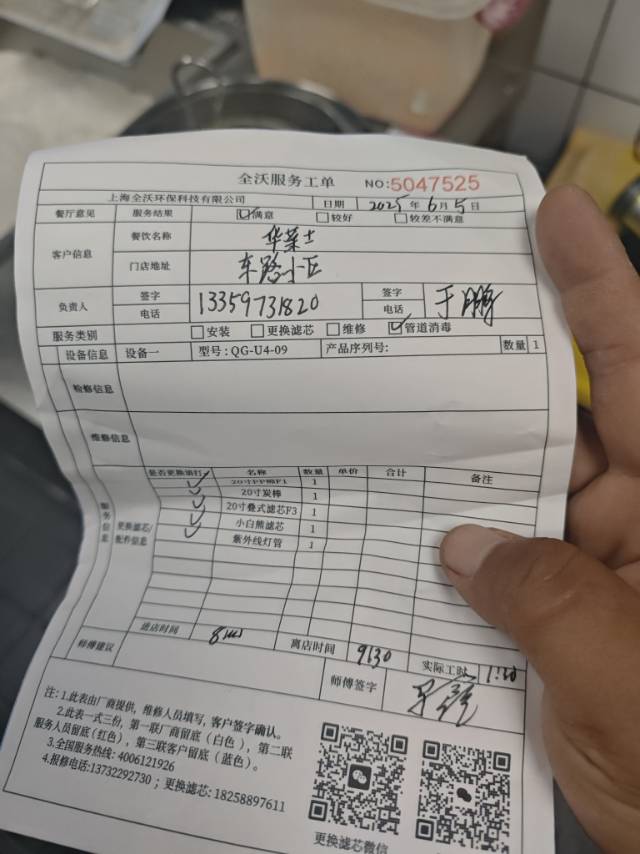 全沃服务工单 NO:5047525
上海全沃环保科技有限公司 日期 2025年6月5日
餐厅意见 服务结果 ☑满意 □较好 □较差不满意
客户信息 餐饮名称 华莱士
门店地址 车路小区
负责人 签字 电话 13359731820 签字 电话 于鹏
服务类别 □安装 □更换滤芯 □维修 ☑管道消毒
设备信息 设备一 型号:QG-U4-09 产品序列号: 数量 1
检修信息
维修信息
服务信息 更换滤芯/配件信息 是否更换请打✓ 名称 数量 单价 合计 备注
✓ 20寸PP棉F1 1
✓ 20寸炭棒 1
✓ 20寸叠式滤芯F3 1
✓ 小白熊滤芯 1
✓ 紫外线灯管 1
进店时间 离店时间 9:30 实际工时
师傅建议 师傅签字
注:1.此表由厂商提供,维修人员填写,客户签字确认。
2.此表一式三份,第一联厂商留底(白色),第二联
服务人员留底(红色),第三联客户留底(蓝色)。
3.全国服务热线:4006121926
4.报修电话:13732292730;更换滤芯:18258897611
更换滤芯微信